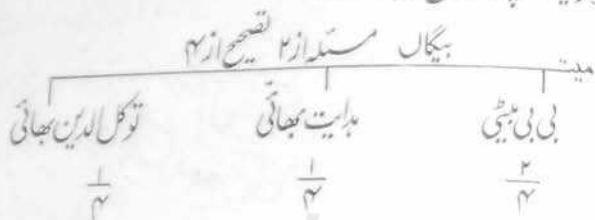 بیگاں مسئلہ از ۲ تصحیح از ۴
میت
بی بی بیٹی ہدایت بھائی توکل الدین بھائی
۲/۴ ۱/۴ ۱/۴